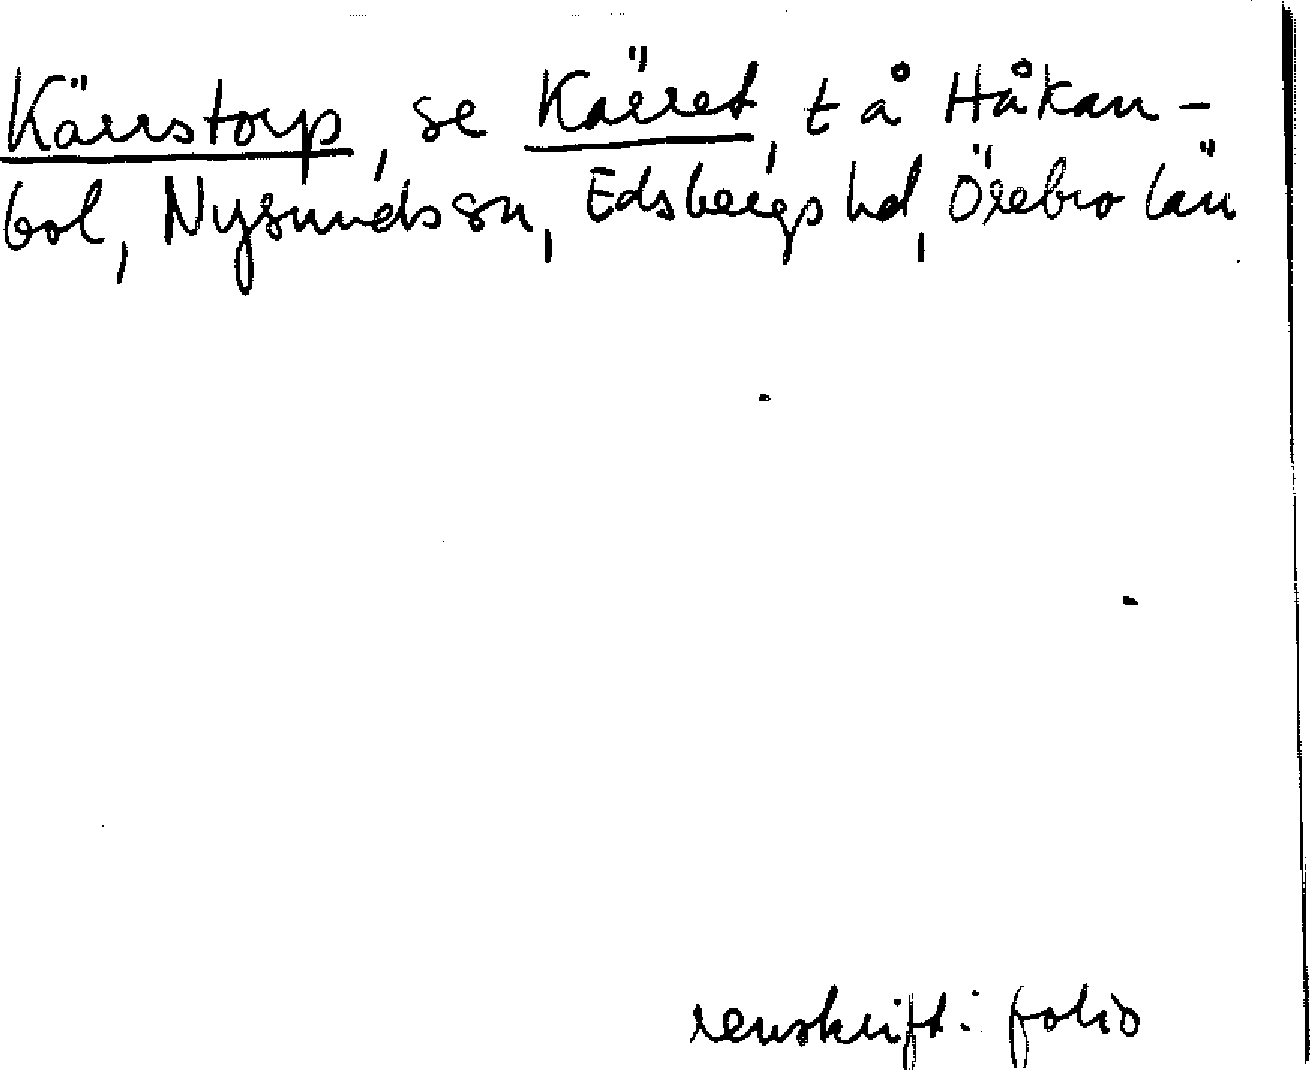 Kärrstorp, se Kärret, t å Håkan-
bol, Nysunds sn, Edsbergs hd, Örebro län
renskrift: folio